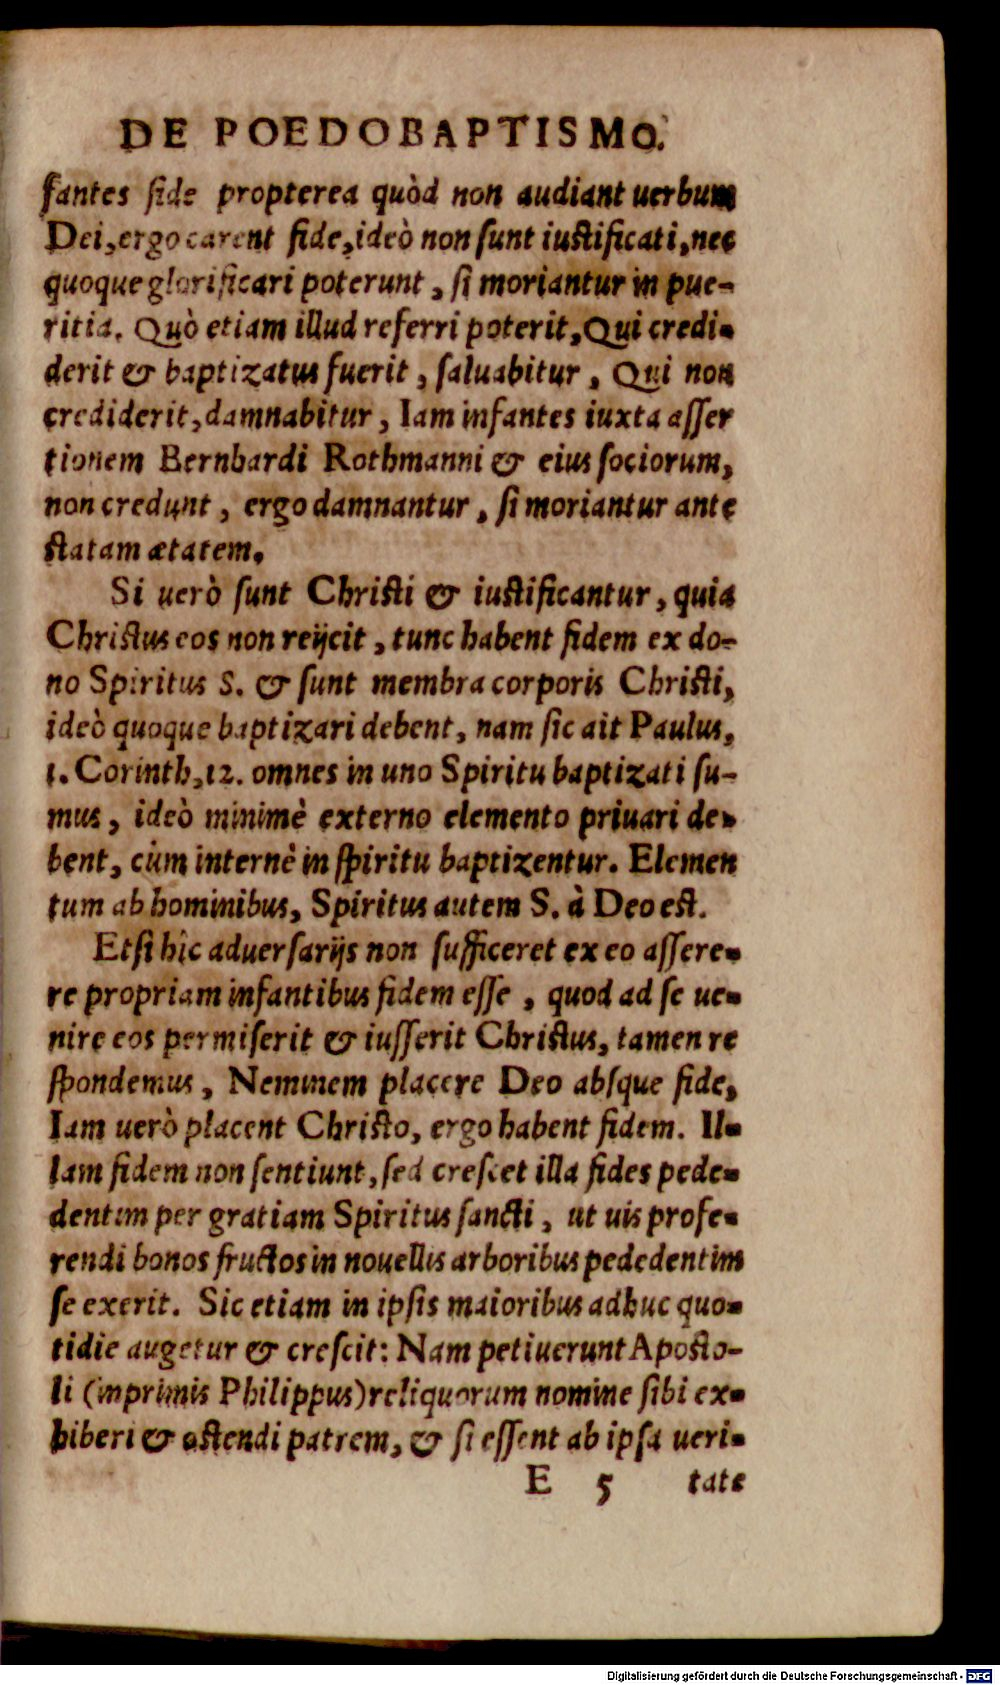 DE POEDOBAPTISMO.
fantes fide propterea quòd non audiant uerbum
Dei, ergo carent fide, ideò non sunt iustificati, nec
quoque glorificari poterunt, si moriantur in pue-
ritia. Quò etiam illud referri poterit, Qui credi-
derit & baptizatus fuerit, saluabitur, Qui non
crediderit, damnabitur, Iam infantes iuxta asser
tionem Bernhardi Rothmanni & eius sociorum,
non credunt, ergo damnantur, si moriantur ante
statam ætatem.
Si uerò sunt Christi & iustificantur, quia
Christus eos non reijcit, tunc habent fidem ex do-
no Spiritus S. & sunt membra corporis Christi,
ideò quoque baptizari debent, nam sic ait Paulus,
1. Corinth, 12. omnes in uno Spiritu baptizati su-
mus, ideò minimè externo elemento priuari de-
bent, cùm internè in spiritu baptizentur. Elemen
tum ab hominibus, Spiritus autem S. à Deo est.
Etsi hic aduersarijs non sufficeret ex eo assere-
re propriam infantibus fidem esse, quod ad se ue-
nire eos permiserit & iusserit Christus, tamen re
spondemus, Neminem placere Deo absque fide,
Iam uerò placent Christo, ergo habent fidem. Il-
lam fidem non sentiunt, sed crescet illa fides pede-
dentim per gratiam Spiritus sancti, ut uis profe-
rendi bonos fructos in nouellis arboribus pededentim
se exerit. Sic etiam in ipsis maioribus adhuc quo-
tidie augetur & crescit: Nam petiuerunt Aposto-
li (inprimis Philippus) reliquorum nomine sibi ex-
hiberi & ostendi patrem, & si essent ab ipsa ueri-
E 5 tate
Digitalisierung gefördert durch die Deutsche Forschungsgemeinschaft - DFG